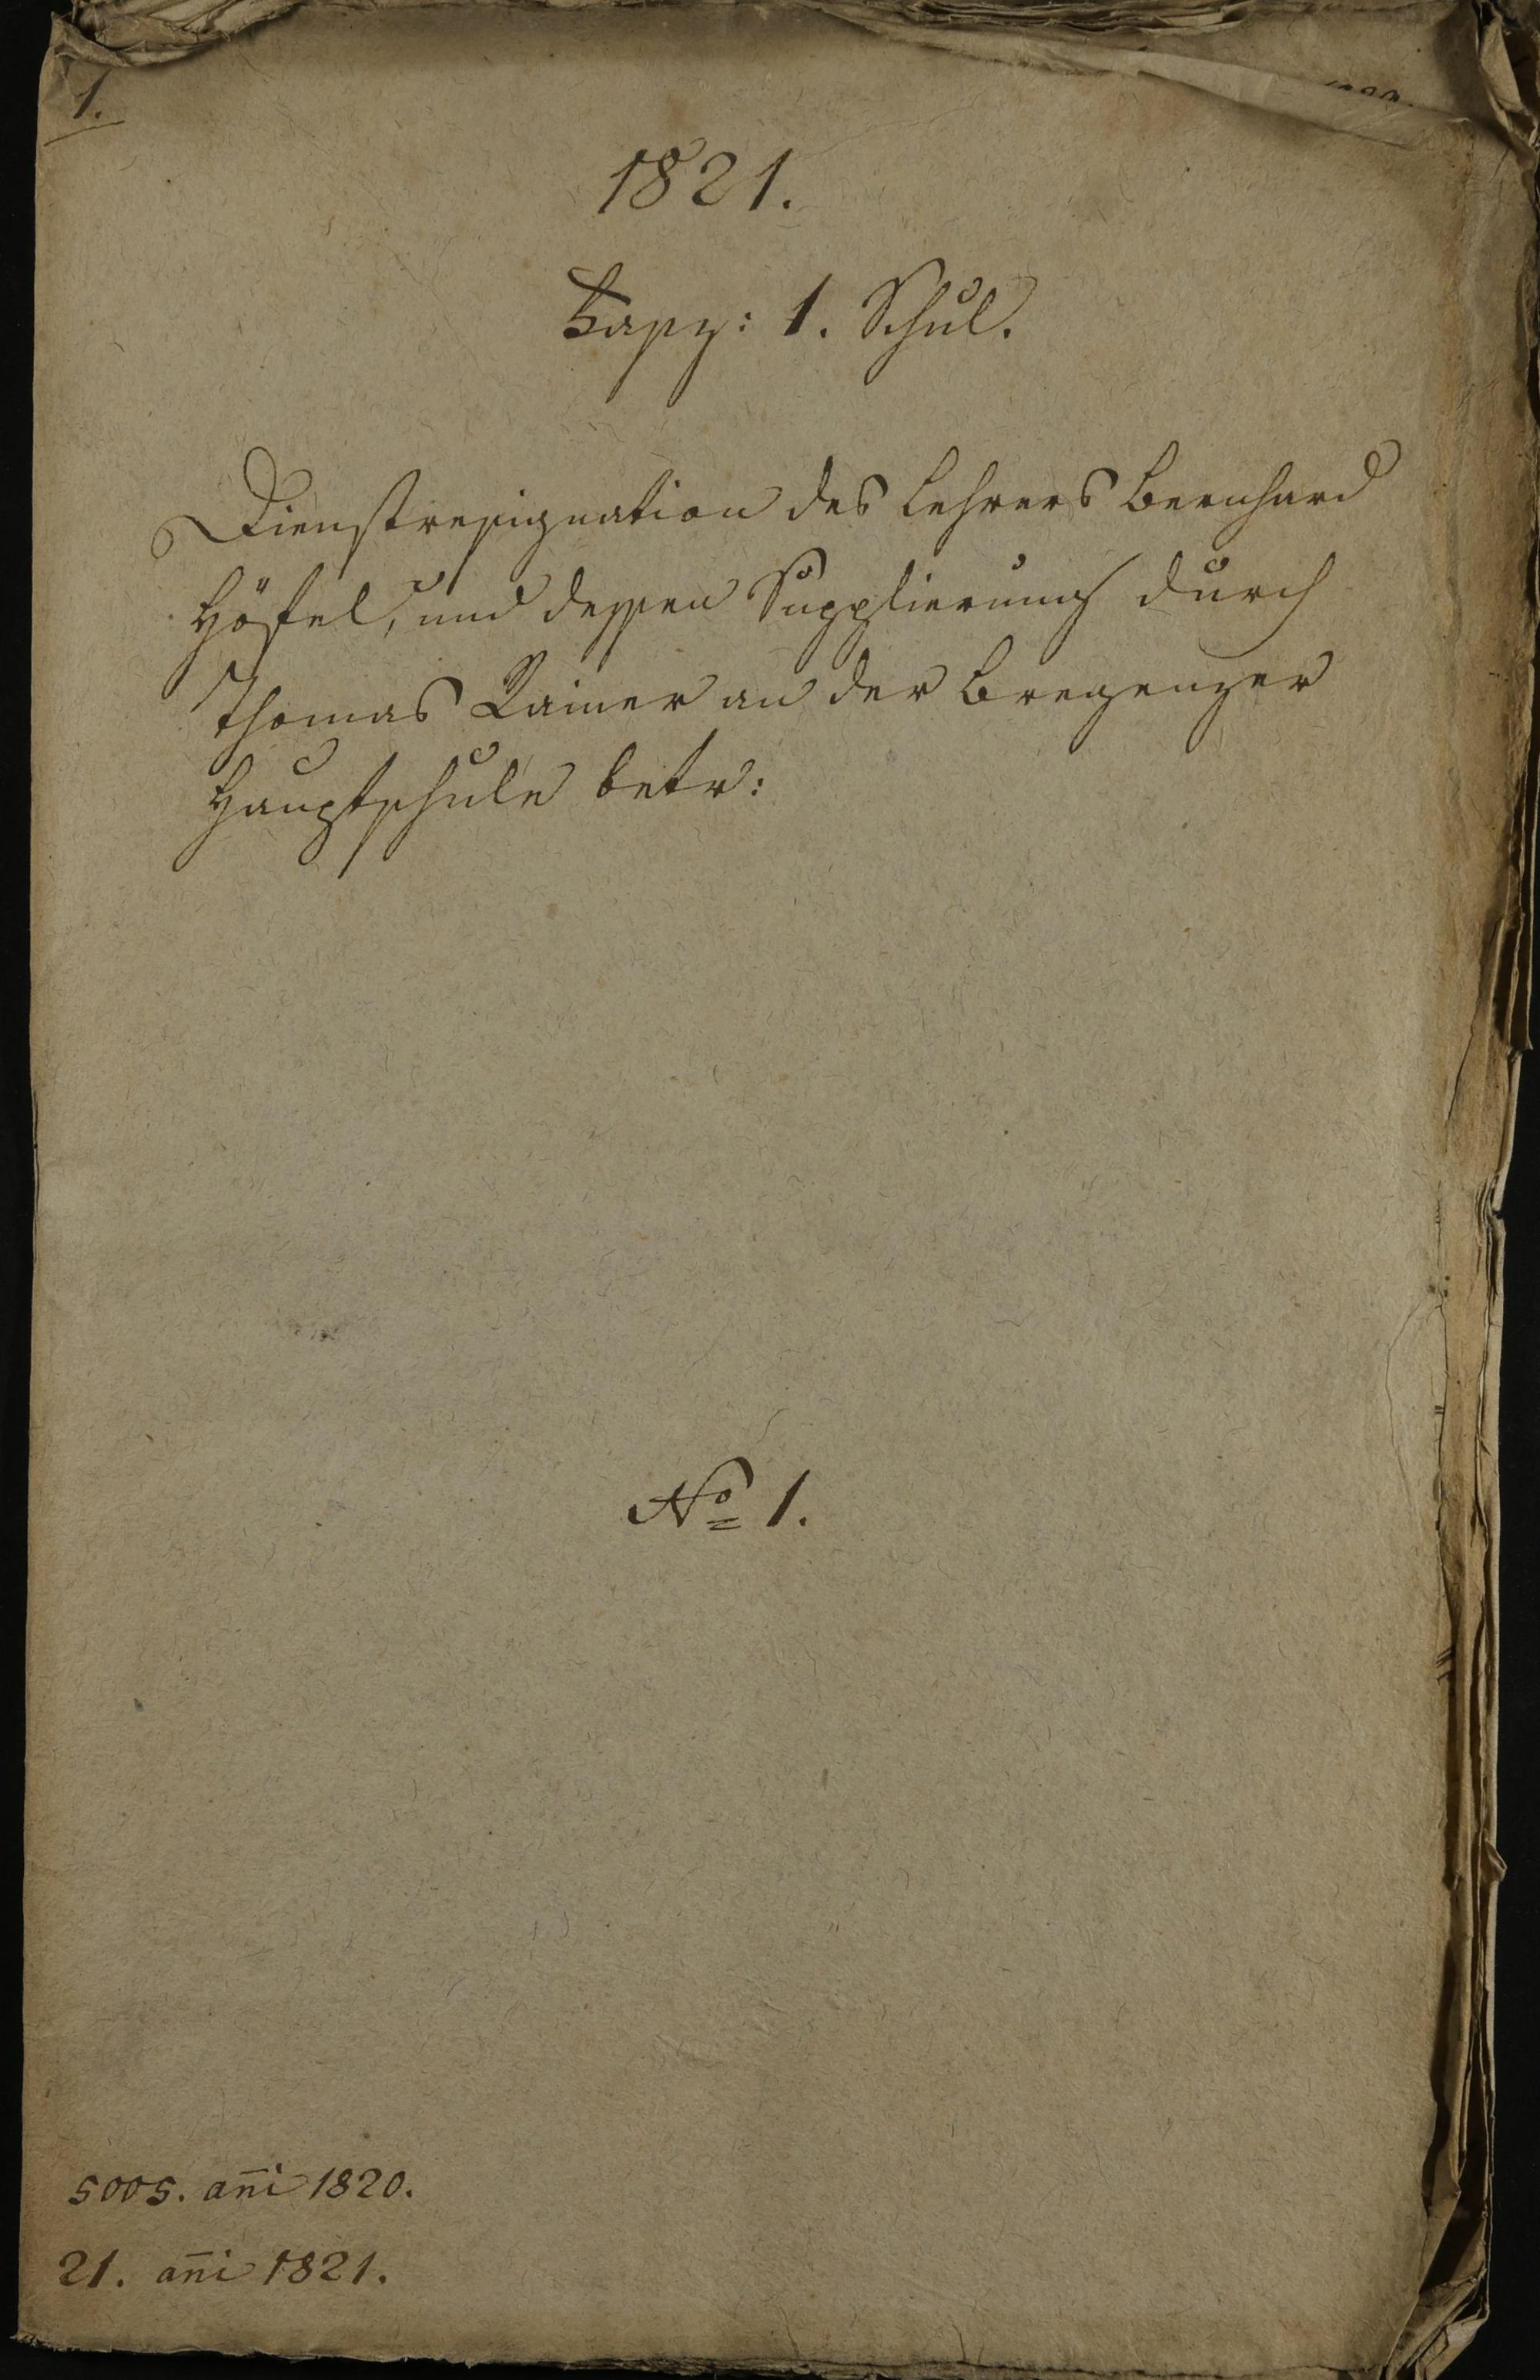 1.
1821.
Fasz: 1. Schul.
Dienstresignation des Lehrers Bernhard
Höstel, und dessen Supplierung durch
Thomas Rainer an der Bregenzer
Hauptschule betr:
No 1.
5005. an̄i 1820.
21. an̄i 1821.